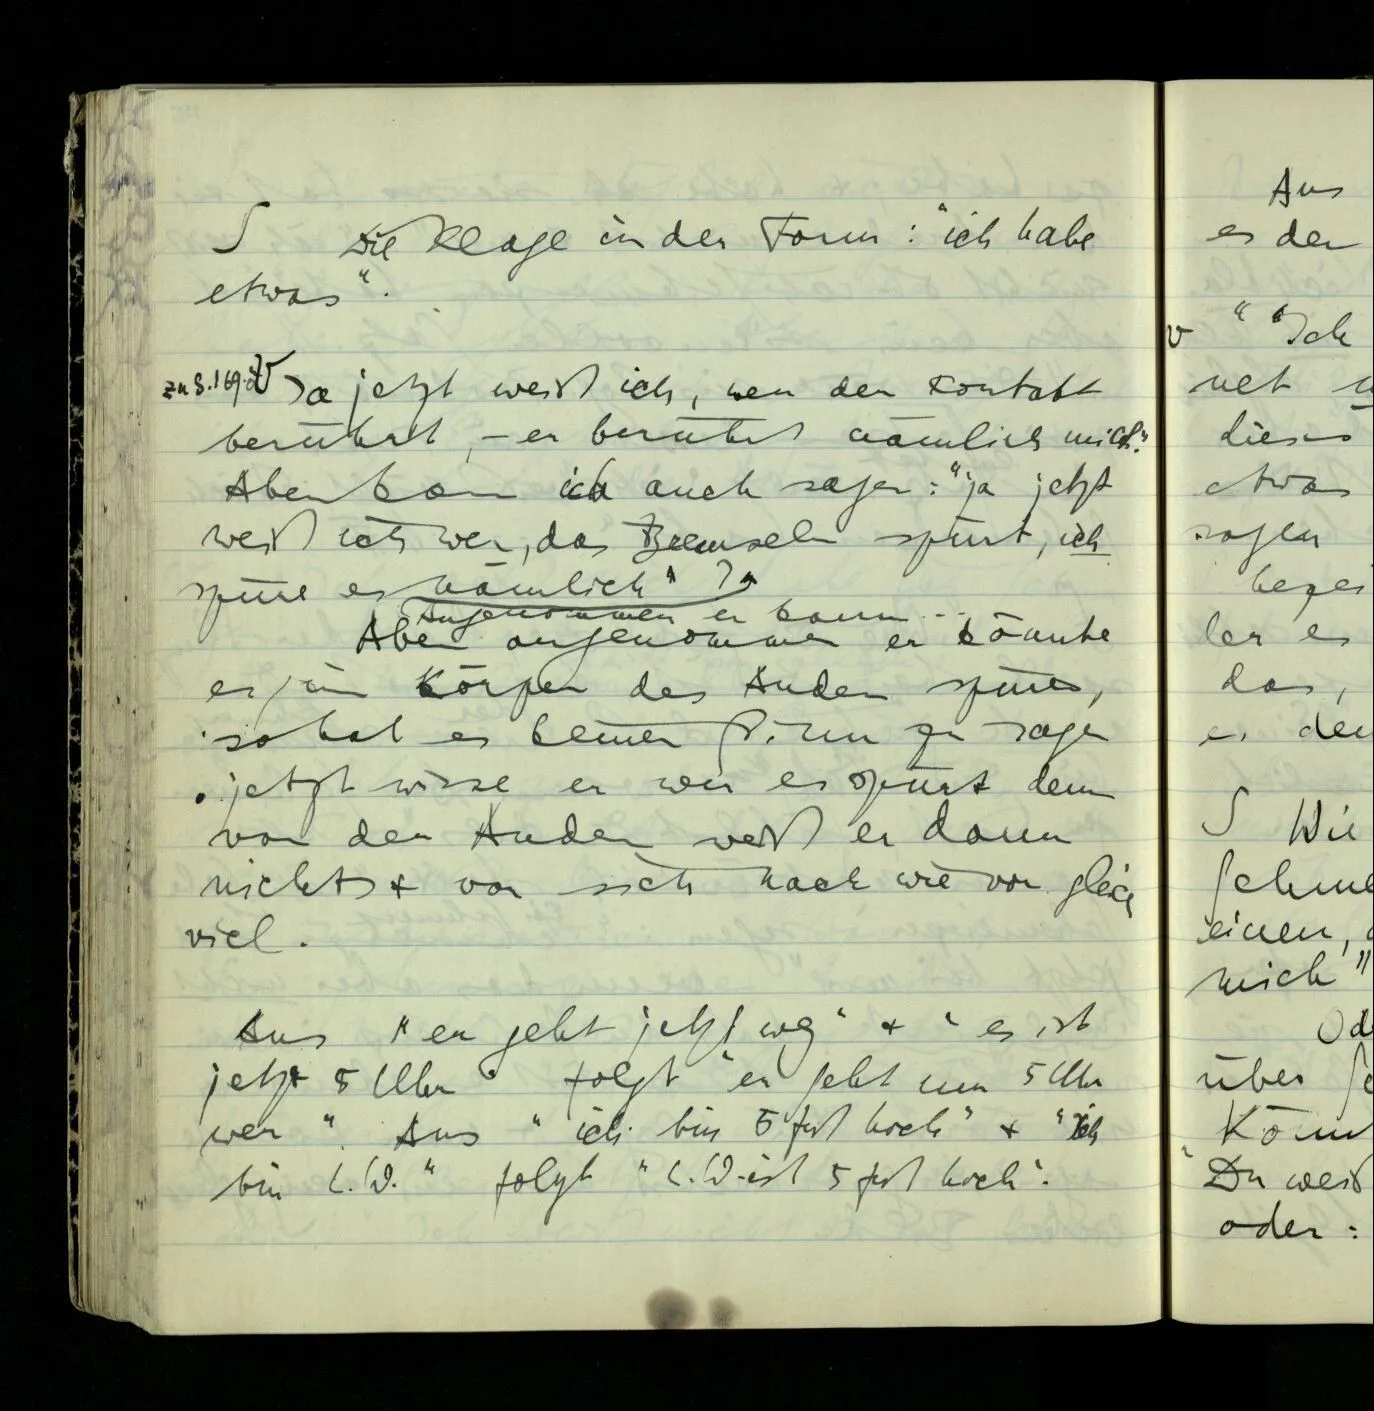 S Die Klage in der Form: "ich habe
etwas".
zu S. 169 V Ja jetzt weiß ich, wer den Kontakt
berührt, – er berührt nämlich mich."
Aber kann ich auch sagen: "ja jetzt
weiß ich wer, das spürt, ich
spüre es nämlich" ?
Angenommen er kann ...
Aber angenommen er könnte
es im Körper des Andern spüren,
so hat es keinen Sinn zu sagen
jetzt wisse er wer es spürt denn
von dem Andern weiß er dann
nichts & von sich nach wie vor gleich
viel.
Aus "er geht jetzt weg" & "es ist
jetzt 5 Uhr" folgt "er geht um 5 Uhr
weg". Aus "ich bin 5 Fuß hoch" & "ich
bin L.W." folgt "L.W. ist 5 Fuß hoch".
Aus
es der
v "Ich
net
dieses
etwas
sagen
ler es
das,
S Wie
einen,
mich"
über
Du weiß
oder: